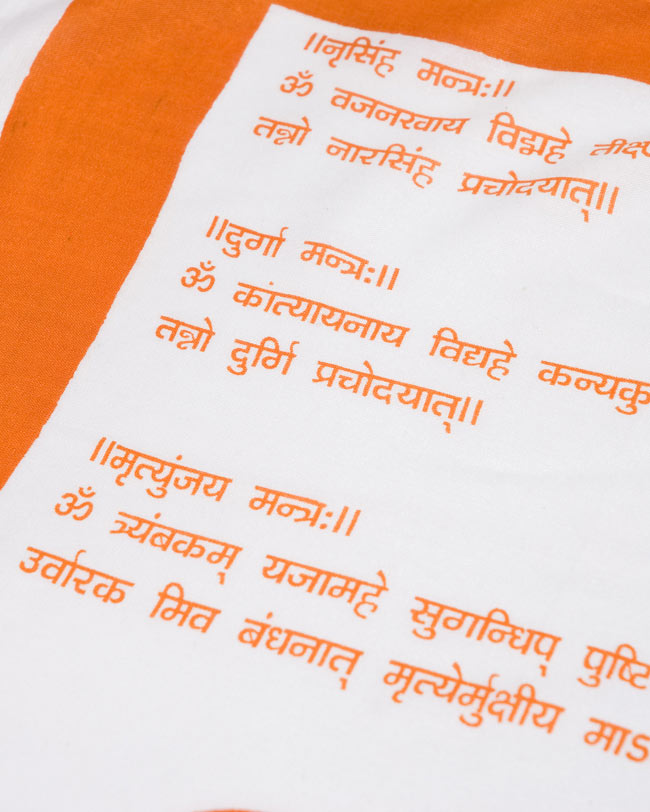 ॥नृसिंह मन्त्रः॥
ॐ वजनरवाय विद्महे तीक्ष्ण
तन्नो नारसिंह प्रचोदयात्॥
॥दुर्गा मन्त्रः॥
ॐ कांत्यायनाय विद्यहे कन्यकु
तन्नो दुर्गि प्रचोदयात्॥
॥मृत्युंजय मन्त्रः॥
ॐ त्र्यंबकम् यजामहे सुगन्धिप् पुष्टि
उर्वारक मिव बंधनात् मृत्येर्मुक्षीय माऽ